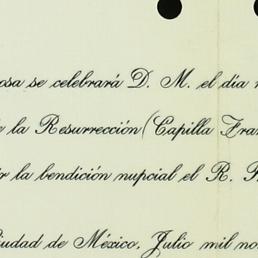 osa se celebrará D. M. el día
la Resurrección (Capilla Fran
ir la bendición nupcial el R. P
iudad de México, Julio mil no